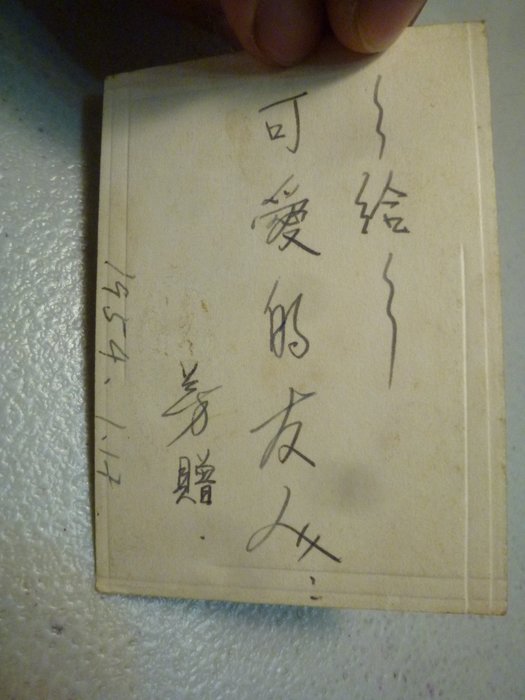 ～給～
可愛的友人:
芳贈.
1954.1.17